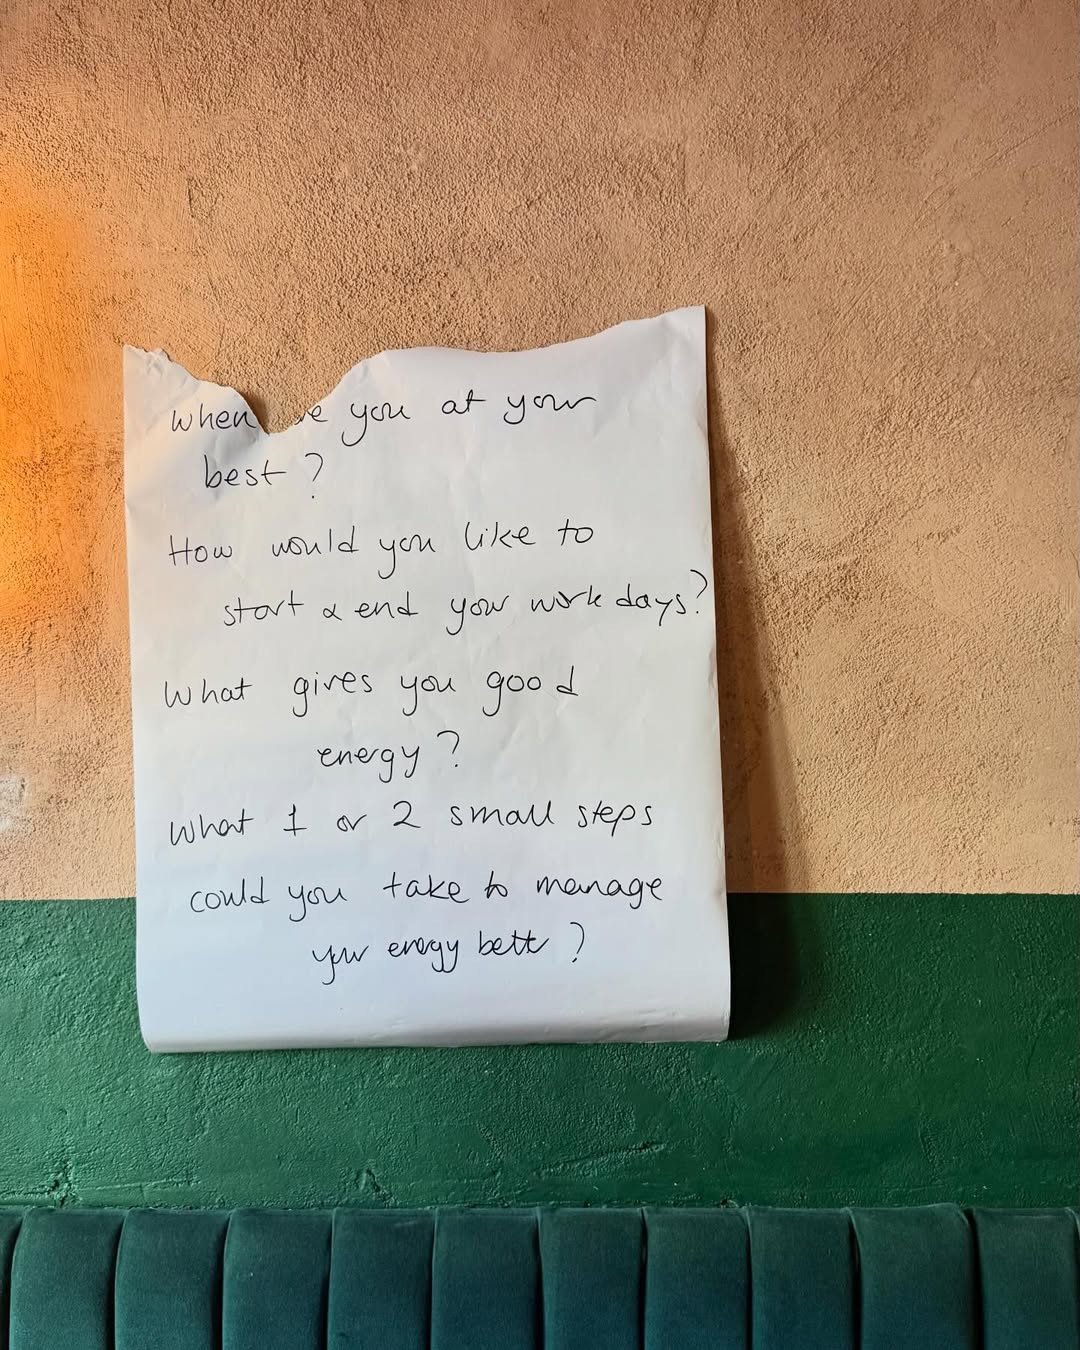 When you at your
best?
How would you like to
start & end your work days?
What gives you good
energy?
What 1 or 2 small steps
could you take to manage
your energy better?